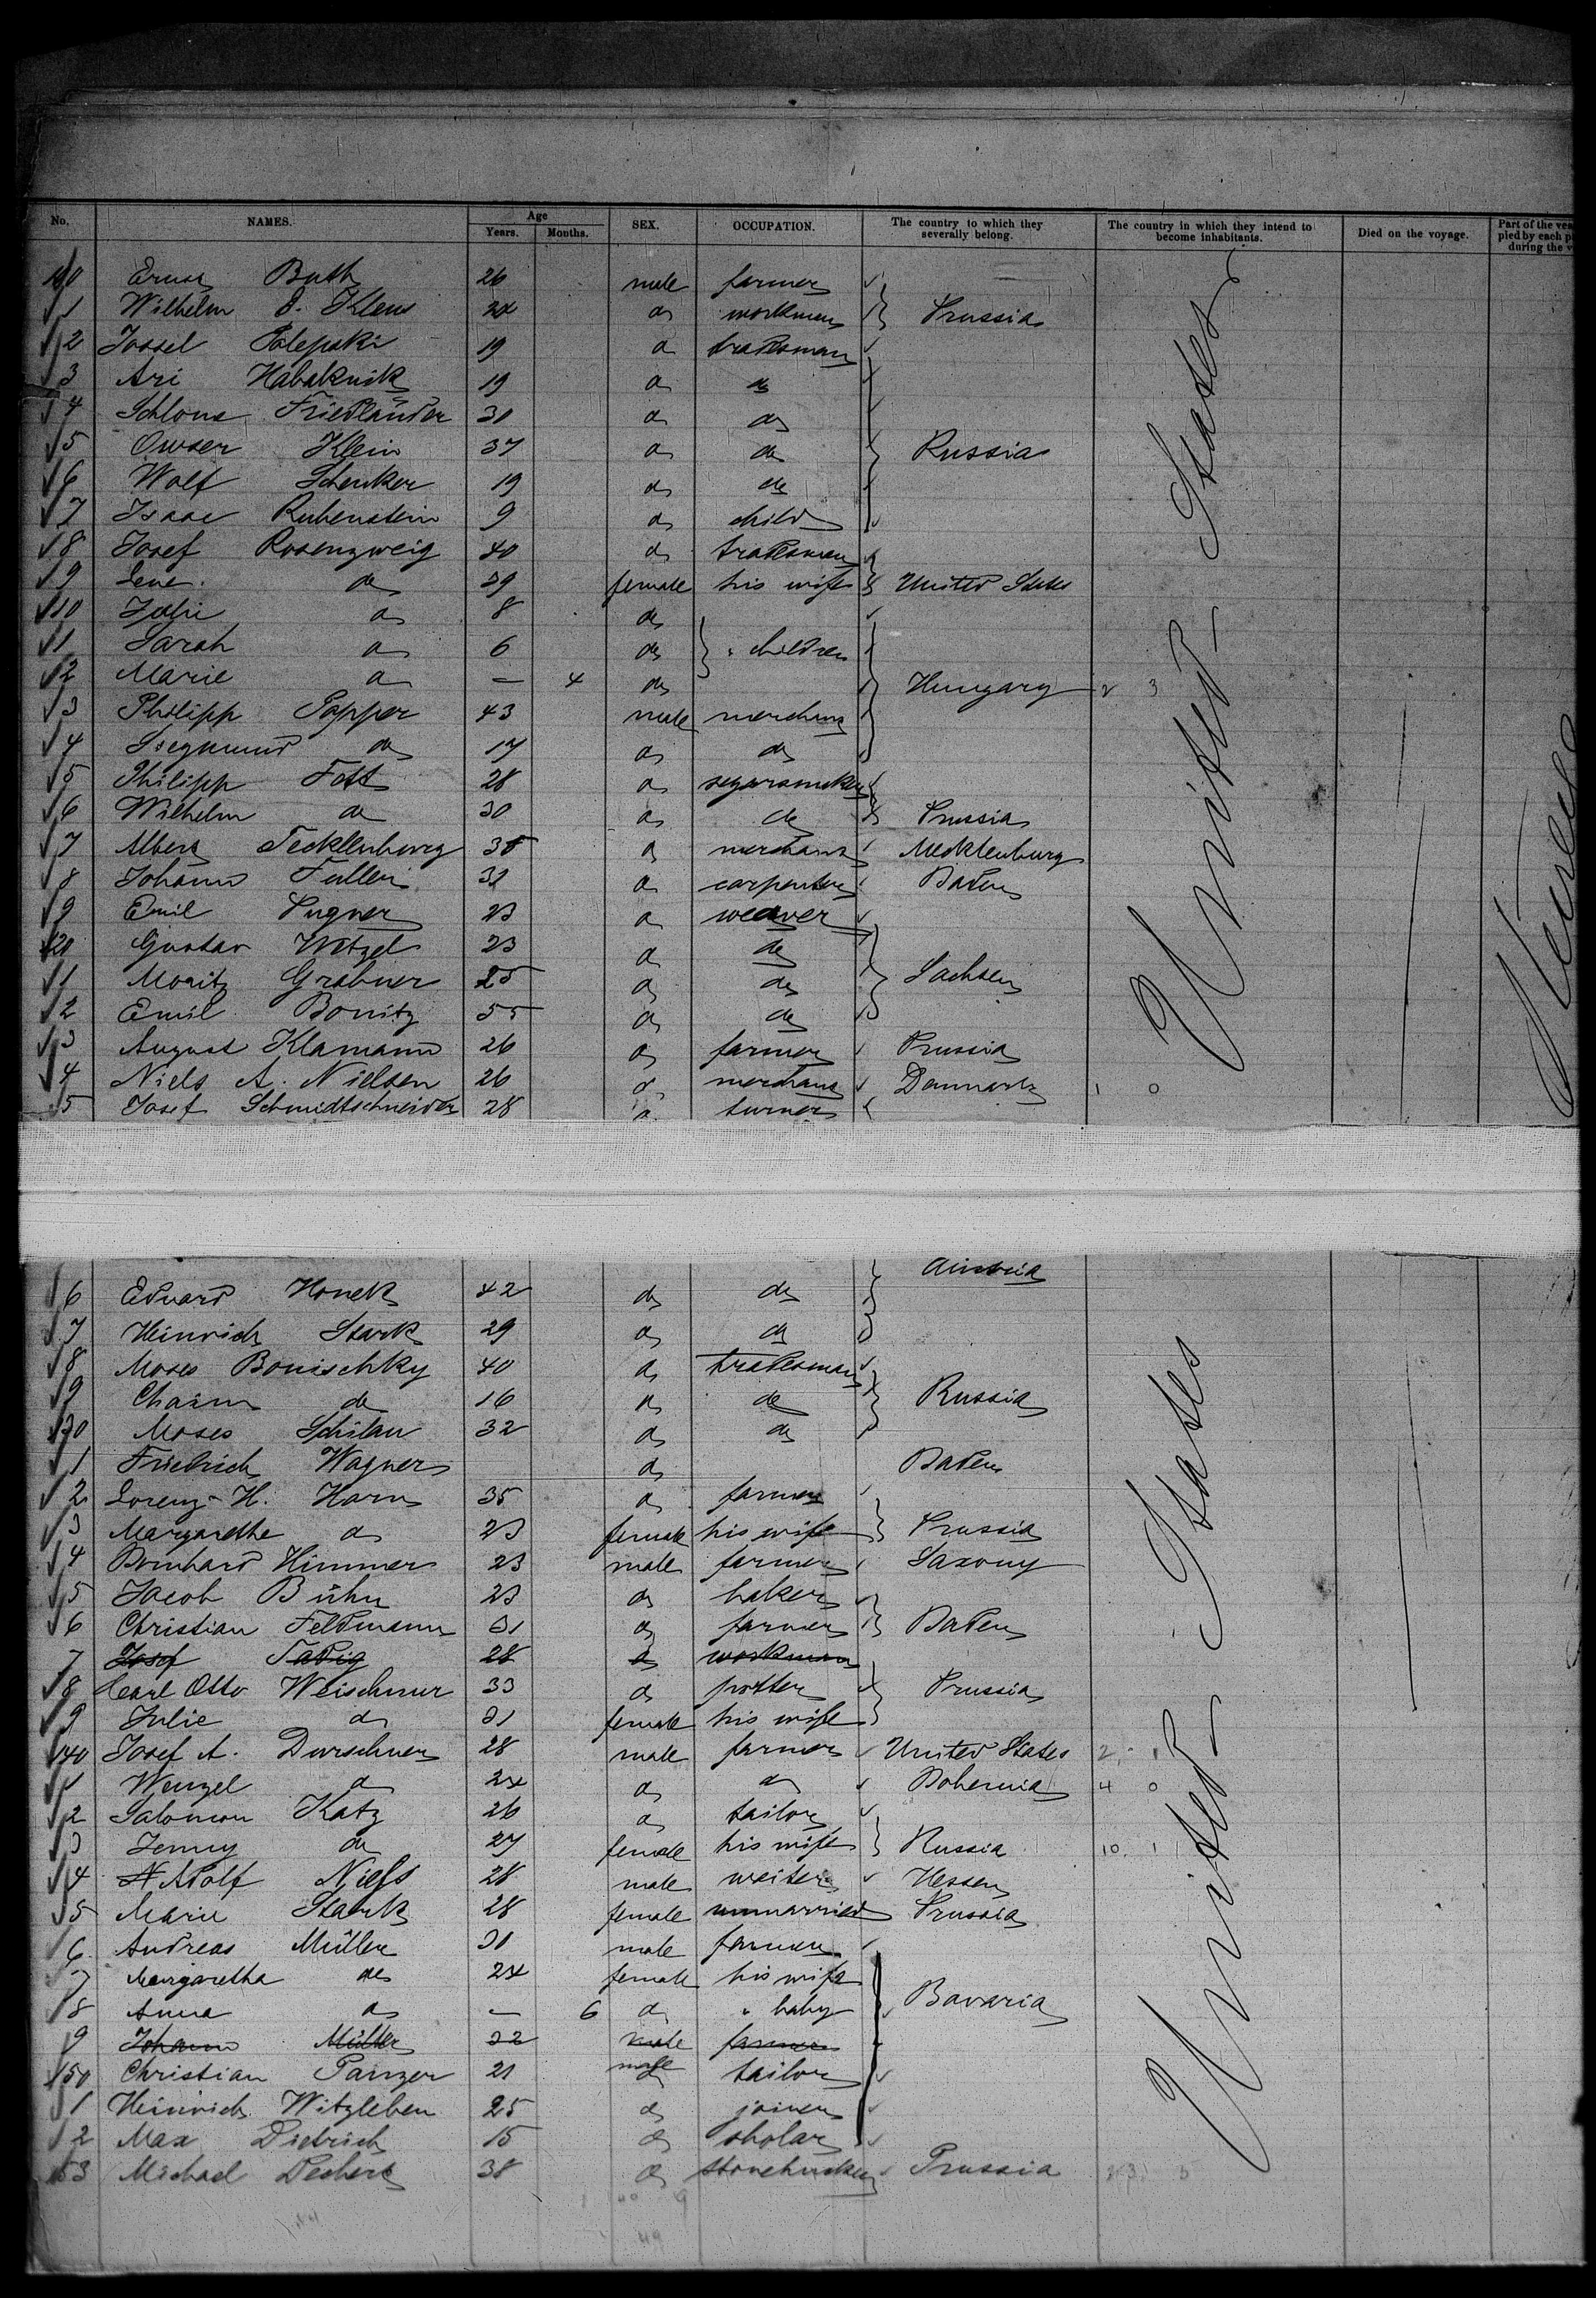 No. NAMES. Age Years. Months. SEX. OCCUPATION. The country to which they severally belong. The country in which they intend to become inhabitants. Died on the voyage. Part of the ves pied by each p during the v
Ernst Buth 26 male farmer
1 Wilhelm J. Klem 24 do workman Prussia
2 Jossel 19 do tradesman
3 Ari Habaknik 19 do do
4 Schloma Friedländer 30 do do
5 Owser Klein 37 do do Russia
6 Wolf Schenker 19 do do
7 Isaac Rubenstein 9 do child
8 Josef Rosenzweig 40 do tradesman
9 Lene do 39 female his wife United States
10 Julie do 8 do
1 Sarah do 6 do " children
2 Marie do — 4 do Hungary 2 3
3 Philipp Popper 43 male merchant
4 Siegmund do 17 do do
5 Philipp Fett 28 do segarsmaker
6 Wilhelm do 30 do do Prussia
7 Albert Tecklenburg 38 do merchant Mecklenburg
8 Johann Fuller 31 do carpenter Baden
9 Emil 23 do weaver
20 Gustav Wetzel 23 do do
1 Moritz Grabner 25 do do Sachsen
2 Emil Bonitz 55 do do
3 August Klamann 26 do farmer Prussia
4 Niels A. Nielsen 26 do merchant Denmark 1 0
5 Josef Schmidtschneider 28 do turner
Austria
6 Eduard Honek 42 do do
7 Heinrich Stark 29 do do
8 Moses Bonischky 40 do tradesman
9 Chaim do 16 do do Russia
30 Moses Schilau 32 do do
1 Friedrich Wagner do Baden
2 Lorenz H. Harm 35 do farmer
3 Margarethe do 23 female his wife Prussia
4 Bernhard Himmer 23 male farmer Saxony
5 Jacob Bühn 23 do baker
6 Christian Feldmann 31 do farmer Baden
7 Josef Tadig 28 do workman
8 Carl Otto Weischner 33 do potter Prussia
9 Julie do 31 female his wife
40 Josef A. Durschner 28 male farmer United States 2 1
1 Wenzel do 24 do do Bohemia 4 0
2 Salomon Katz 26 do tailor
3 Jenny do 27 female his wife Russia 10 1
4 Adolf Niess 28 male waiter Hessen
5 Marie Stark 28 female unmarried Prussia
6 Andreas Müller 30 male farmer
7 Margaretha do 24 female his wife
8 Anna do — 6 do " baby Bavaria
9 Johann Müller 22 male farmer
50 Christian Panzer 21 male tailor
1 Heinrich Witzleben 25 do joiner
2 Max Dietrich 15 do sholar
53 Michael Dechert 38 do Prussia
United States
United States
49